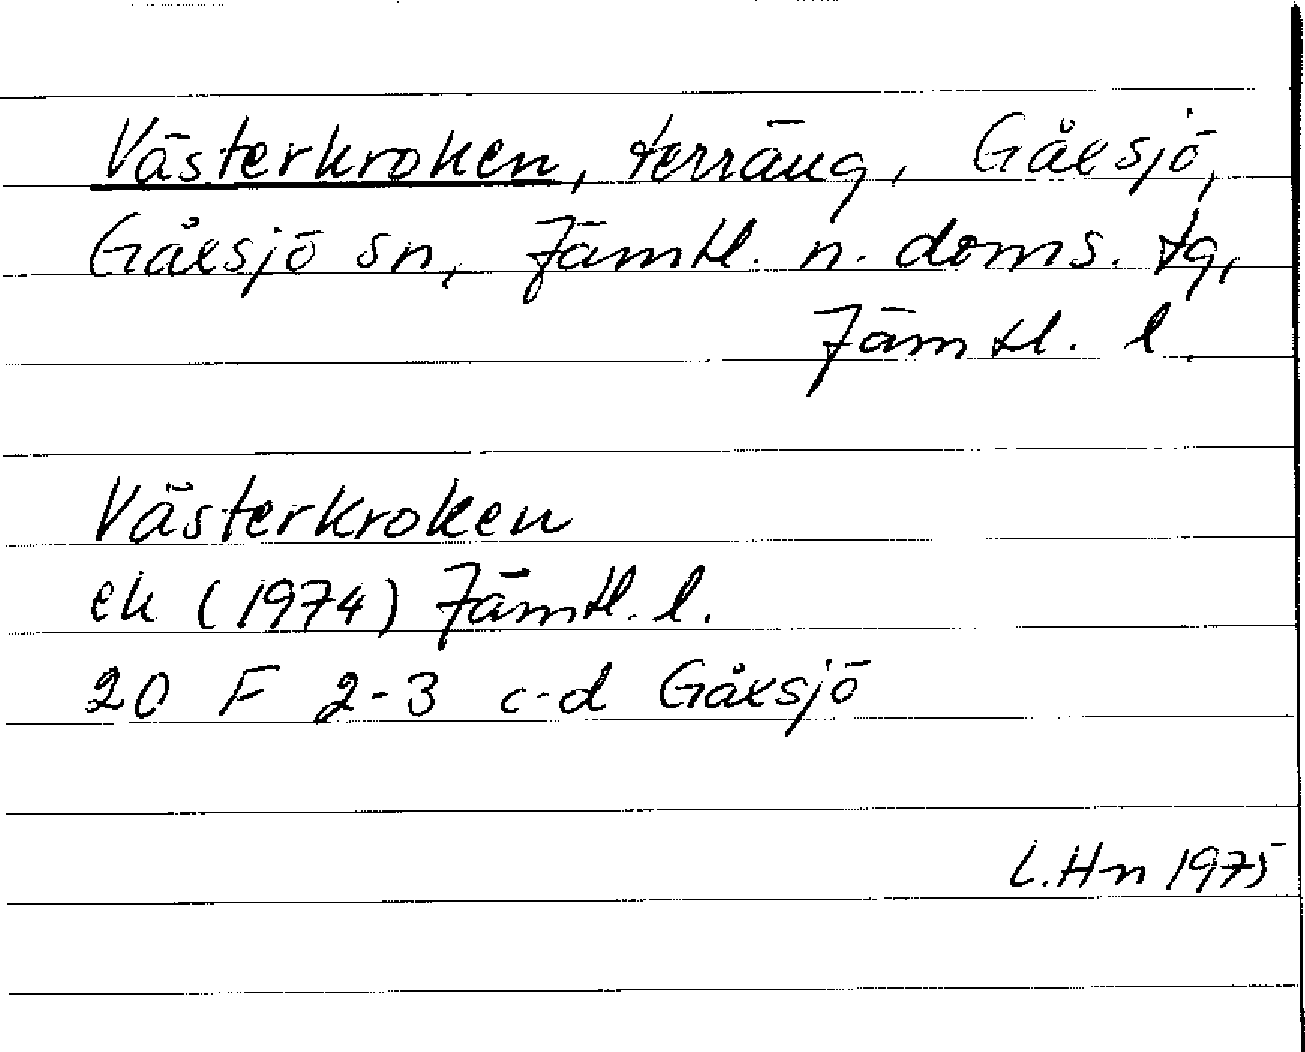 Västerkroken, terräng, Gåxsjö,
Gåxsjö sn, Jämtl. n. doms. tg,
Jämtl. l.
Västerkroken
ek (1974) Jämtl. l.
20 F 2-3 c-d Gåxsjö
L. Hn 1975